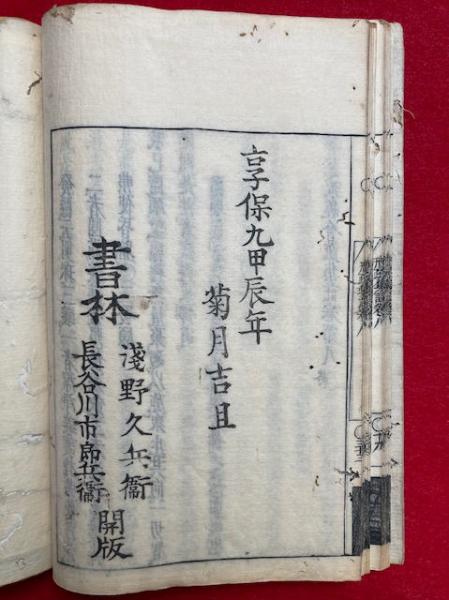 享保九甲辰年
菊月吉旦
書林
淺野久兵衞
長谷川市郎兵衞
開版